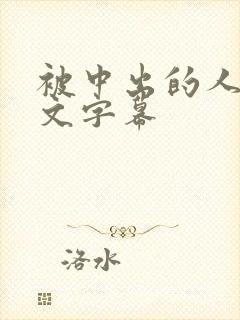 被中出的人
文字幕
洛水